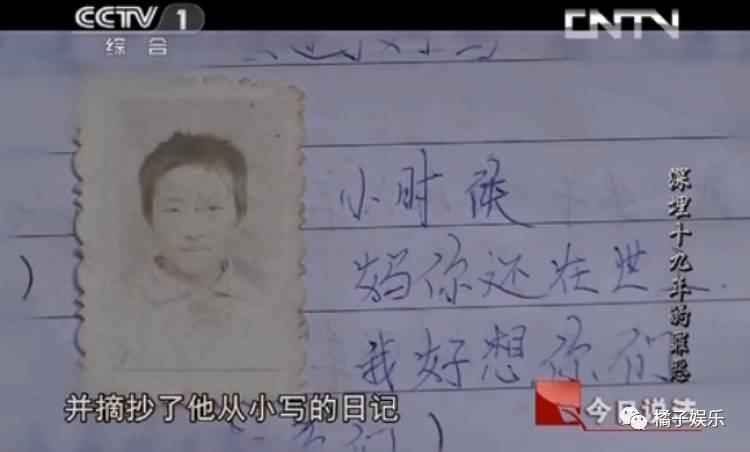 CCTV 1
综合
CNTV
小时侯
妈你还在世
我好想你们
深埋十九年的罪恶
并摘抄了他从小写的日记
今日说法
橘子娱乐